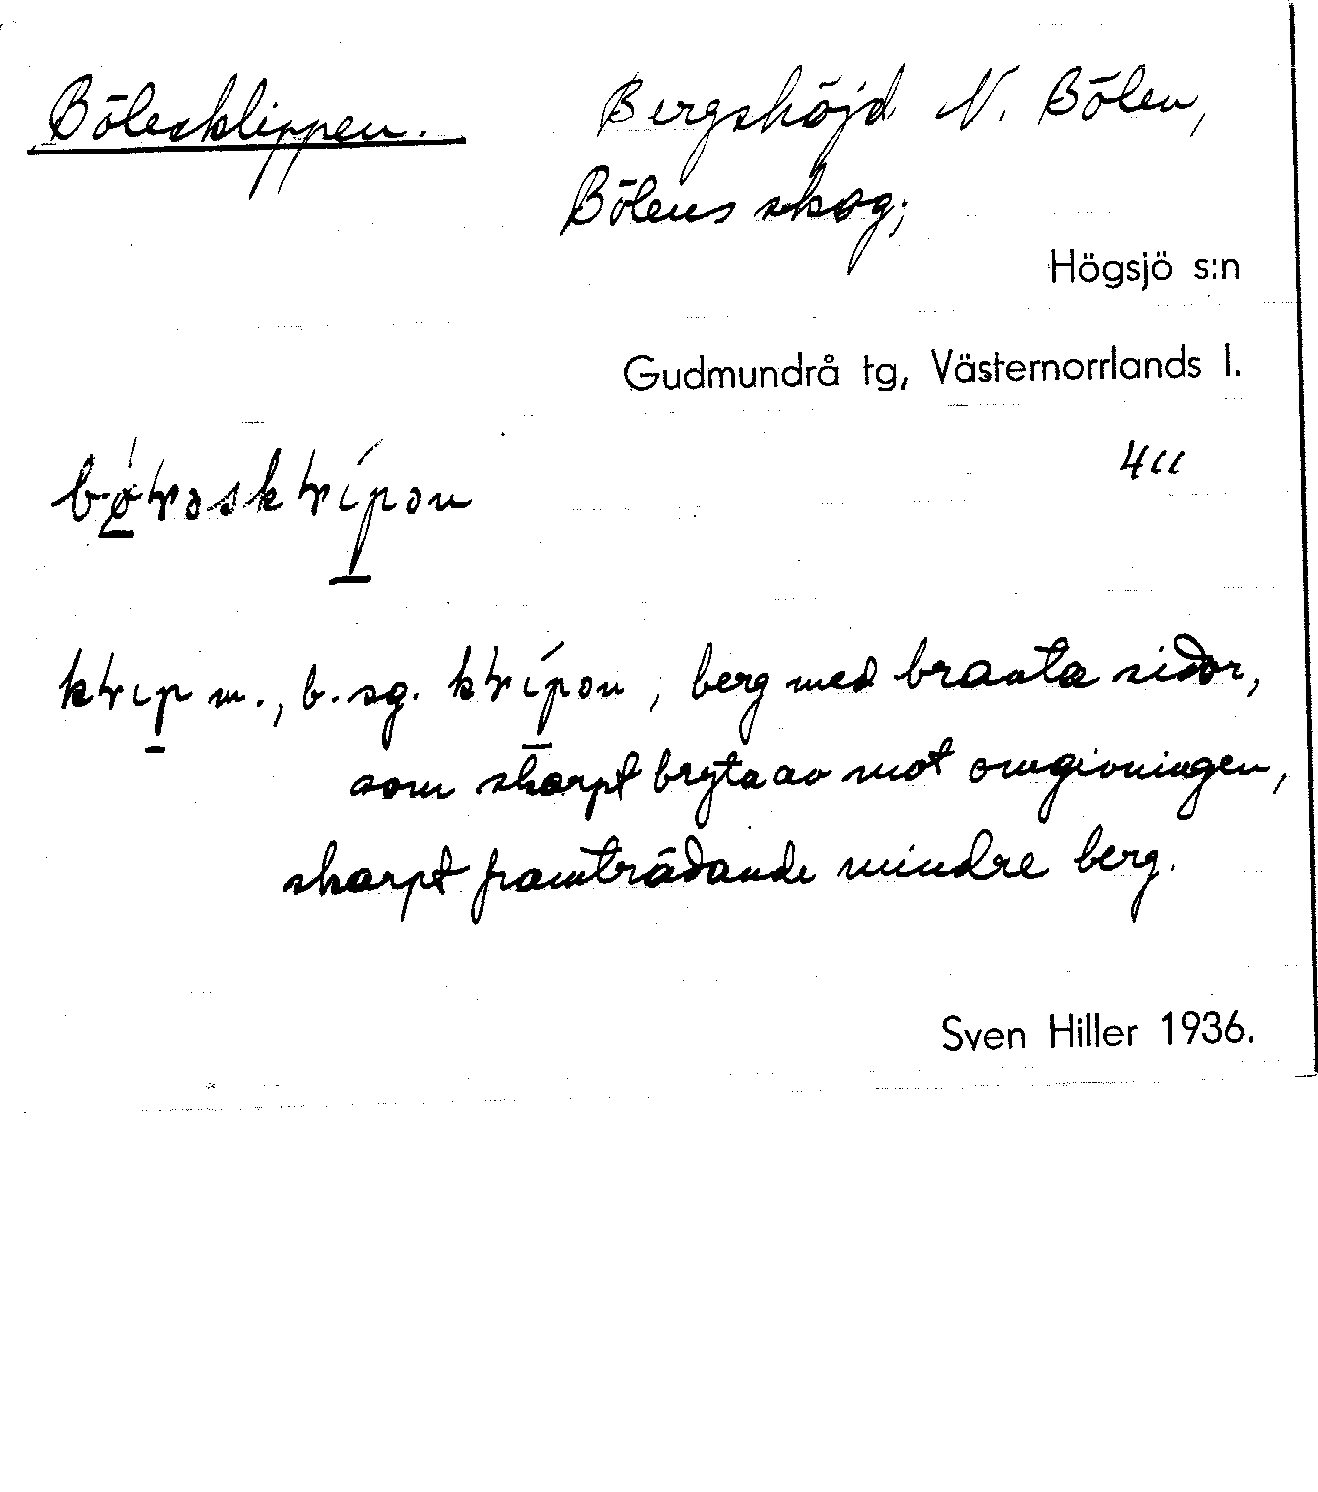 Bölesklippen. Bergshöjd N. Bölen,
Bölens skog;
Högsjö s:n
Gudmundrå tg, Västernorrlands l.
411
m., b. sg. , berg med branta sidor,
som skarpt bryta av mot omgivningen,
skarpt framträdande mindre berg.
Sven Hiller 1936.